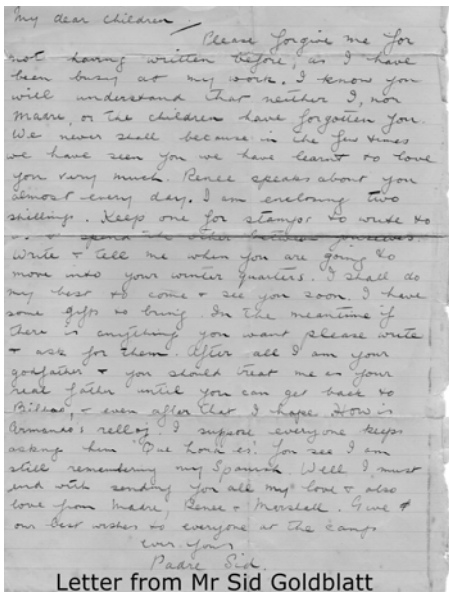 My dear children
Please forgive me for
not having written before, as I have
been busy at my work. I know you
will understand that neither I, nor
Madre, or the children have forgotten you.
We never shall because in the few times
we have seen you we have learnt to love
you very much. Renee speaks about you
almost every day. I am enclosing two
shillings. Keep one for stamps to write to
spend the other between yourselves.
Write + tell me when you are going to
move into your winter quarters. I shall do
my best to come + see you soon. I have
some gifts to bring. In the meantime if
there is anything you want please write
+ ask for them. After all I am your
godfather + you should treat me as your
real father until you can get back to
Bilbao, + even after that I hope. How is
Armando's relloj. I suppose everyone keeps
asking him 'Que hora es'. You see I am
still remembering my Spanish. Well I must
end with sending you all my love + also
love from Madre, Renee + Marshall. Give
our best wishes to everyone at the camp
ever yours
Padre Sid.
Letter from Mr Sid Goldblatt